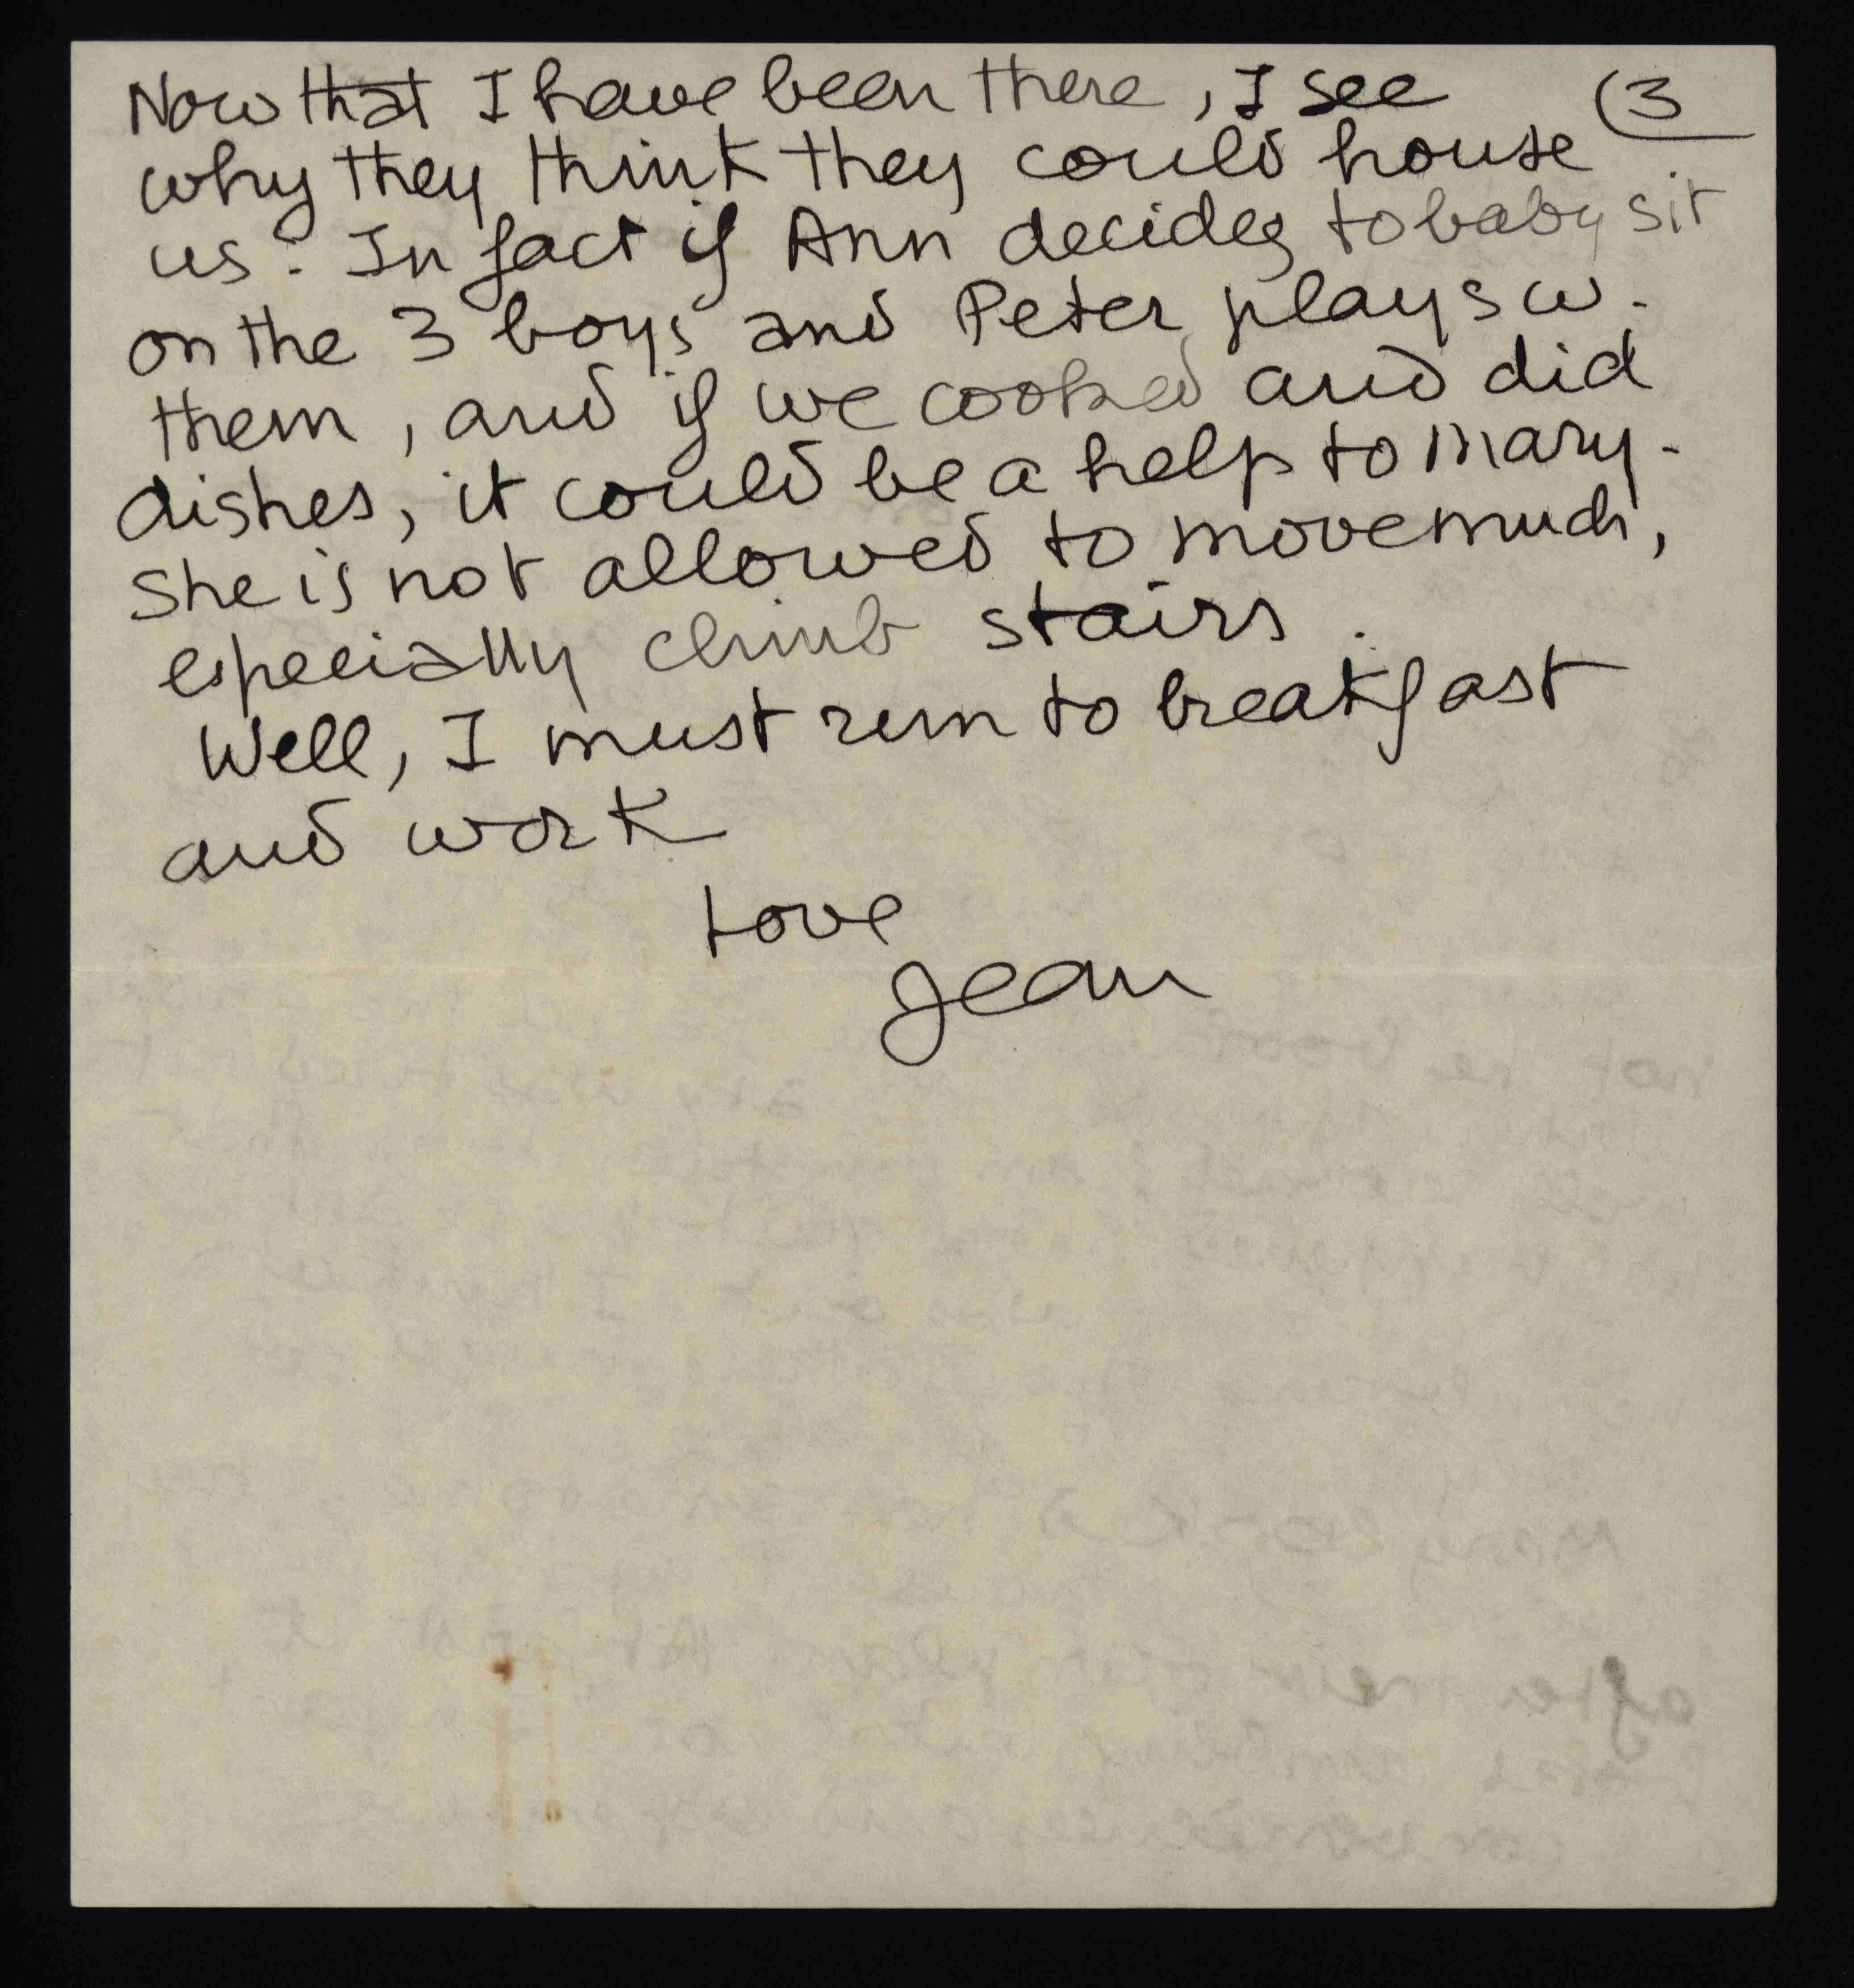 Now that I have been there, I see (3
why they think they could house
us. In fact if Ann decides to baby sit
on the 3 boys and Peter plays w.
them, and if we cooked and did
dishes, it could be a help to Mary.
She is not allowed to move much,
especially climb stairs.
Well, I must run to breakfast
and work
Love
Jean